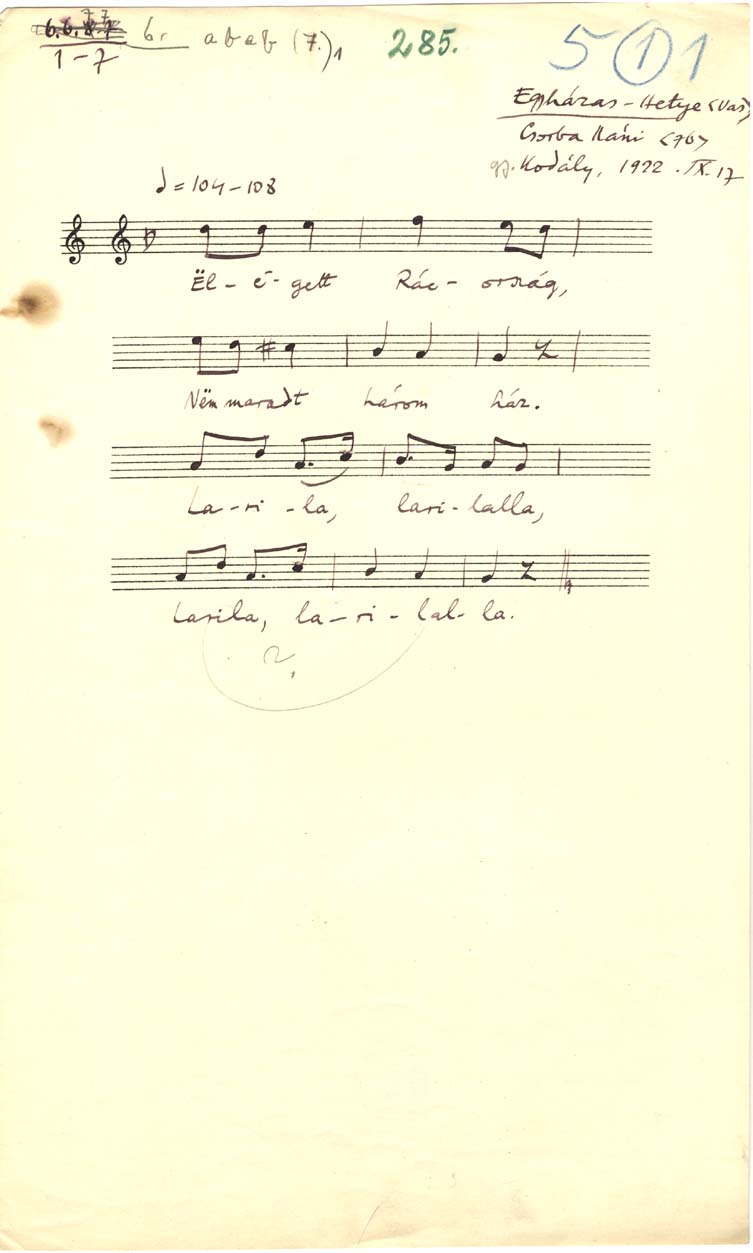 6. a b a b (7.)₁ 285. 5 ① 1
1-7
Egyházas-Hetye (Vas)
Csorba Náni <76>
gy. Kodály, 1922. IX. 17
= 104-108
Ël-é-gett Rác-ország,
Nëm maradt három ház.
La-ri-la, lari-lalla,
Larila, la-ri-lal-la.